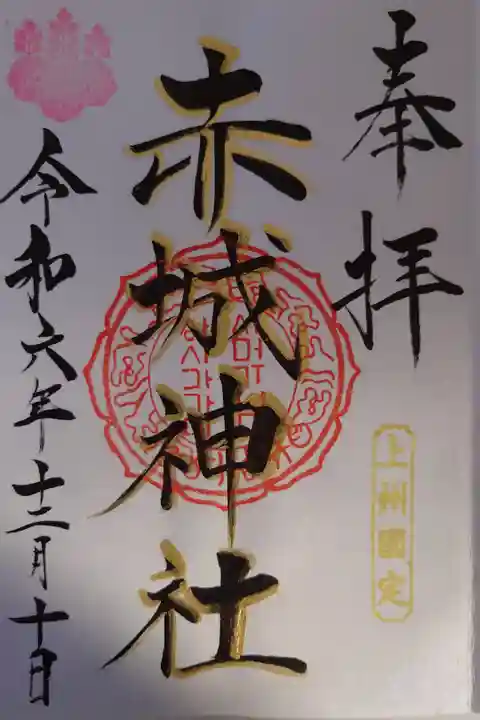 奉拝
上州國定
赤城神社
令和六年十二月十日